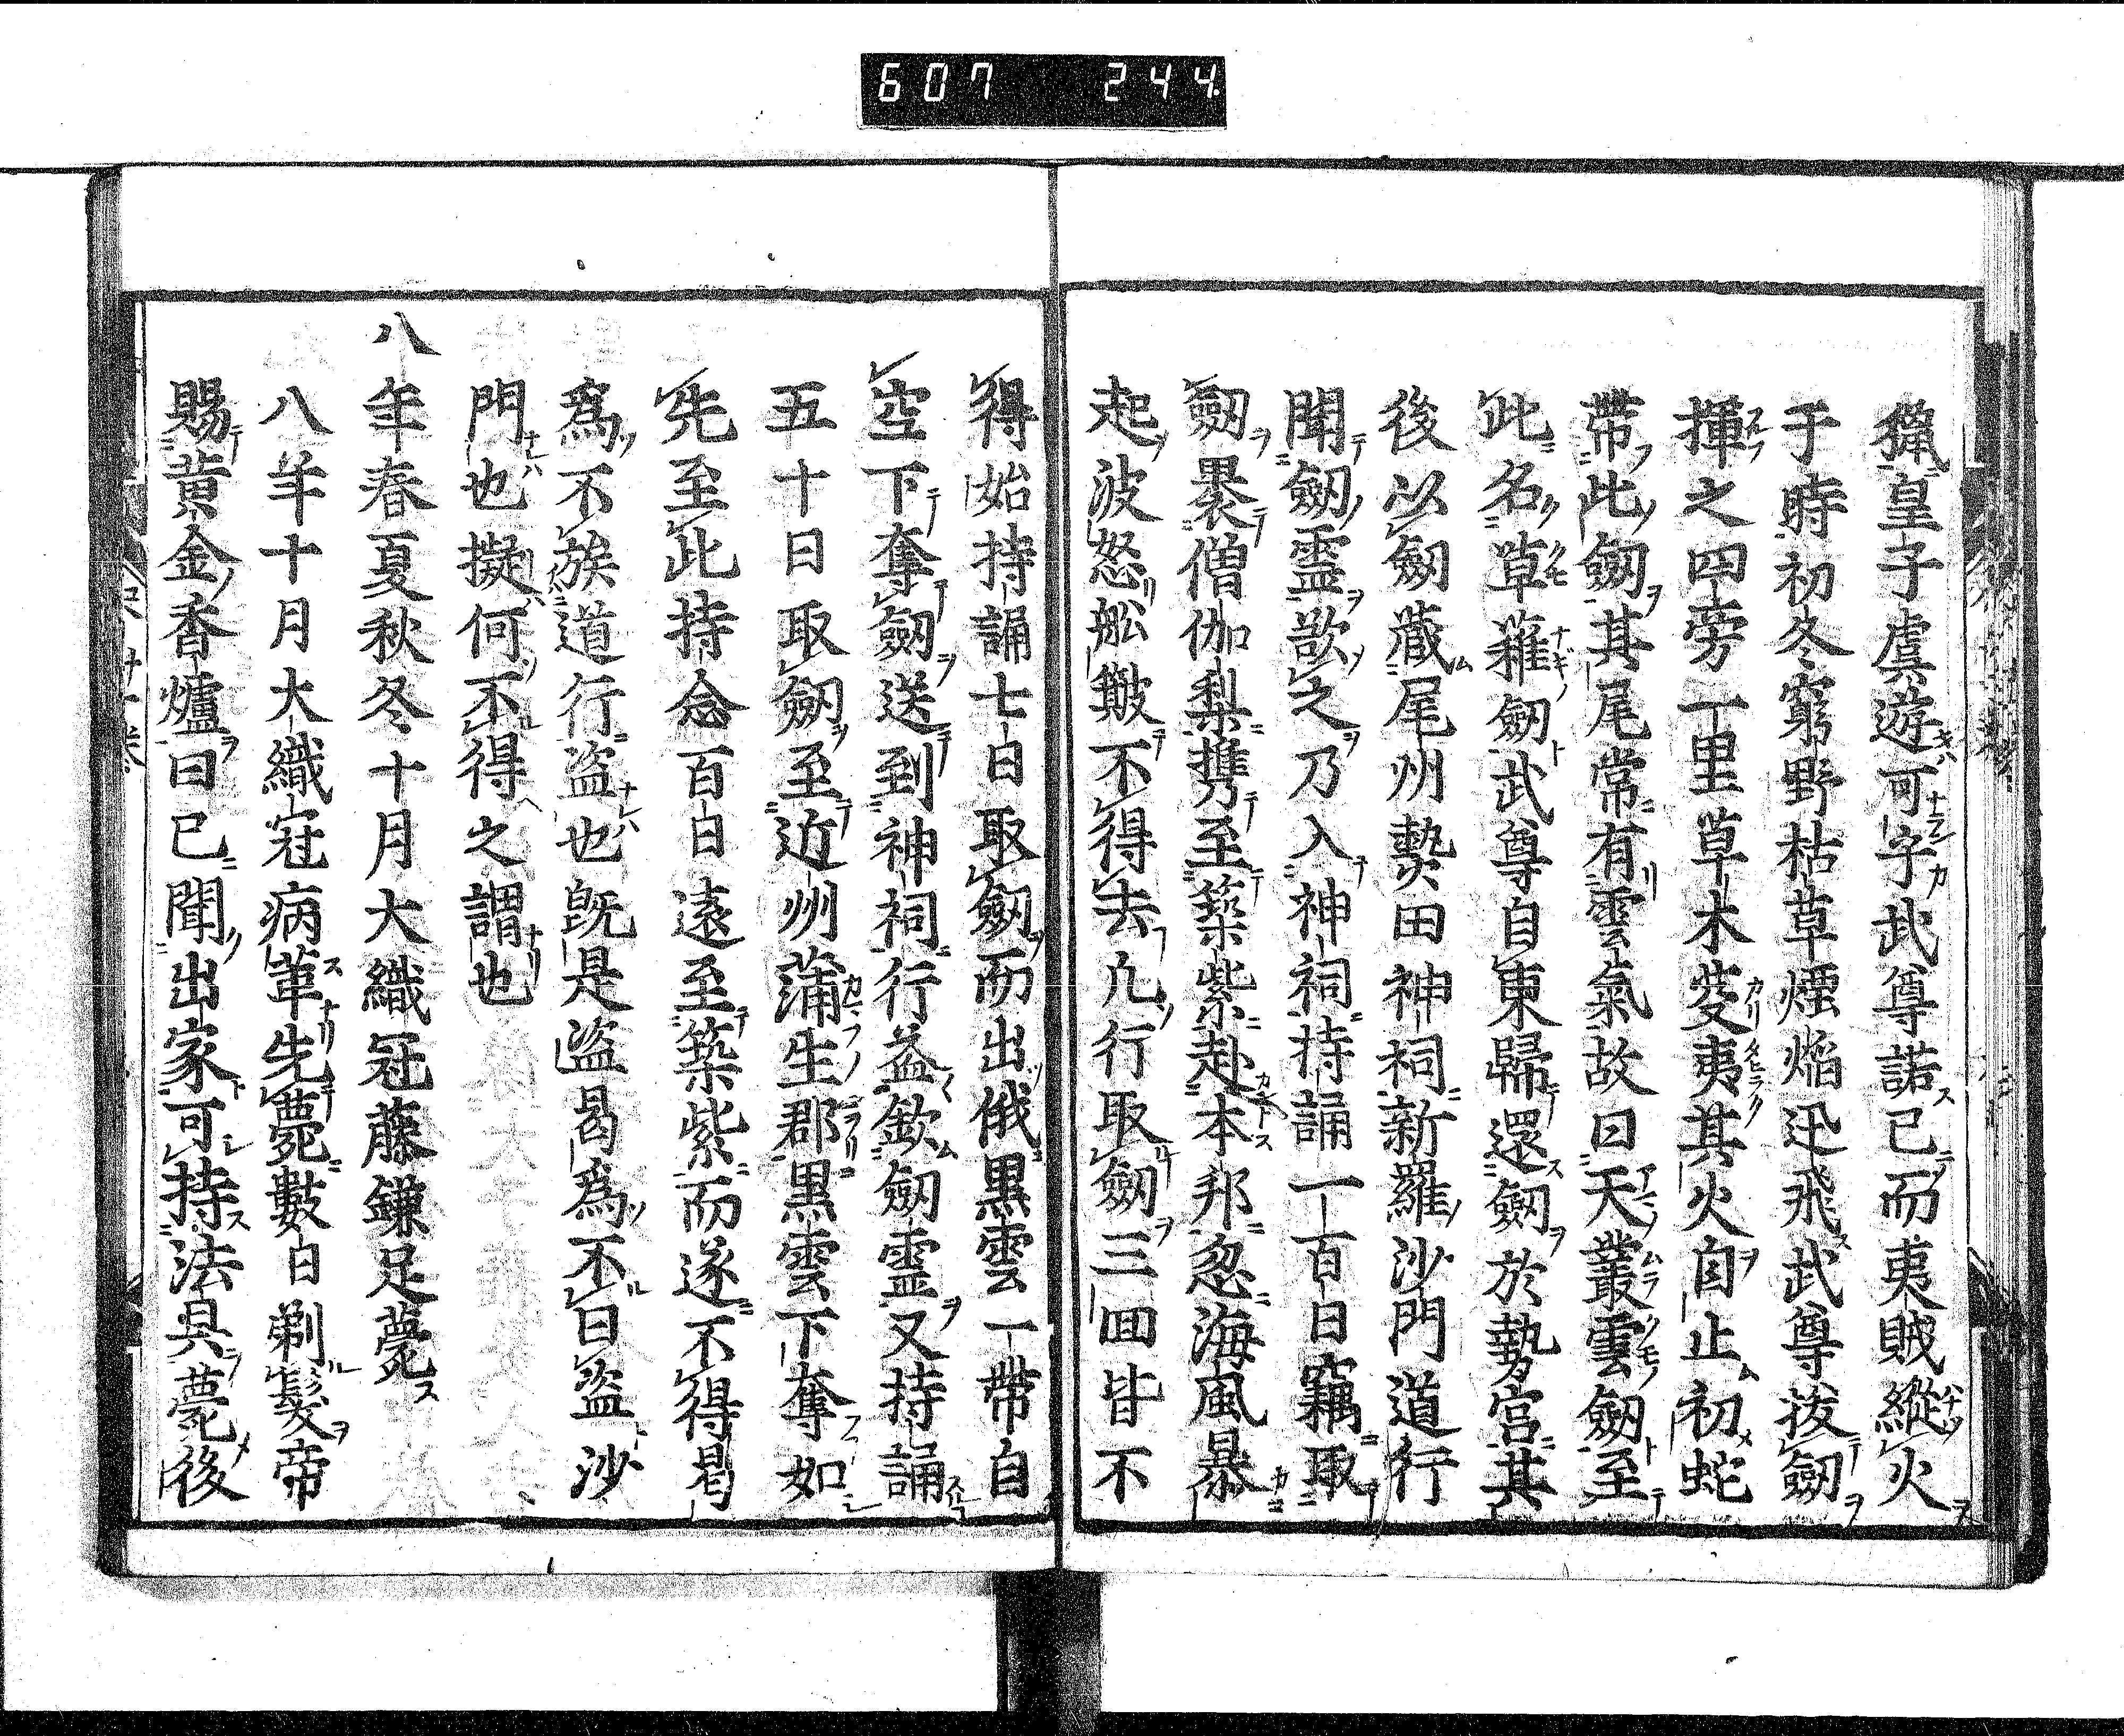 607 244
獵皇子虞遊可乎武尊諾已而夷賊縱火
于時初冬窮野枯草煙焰迅飛武尊拔劔
揮之四旁一里草木芟夷其火自止初蛇
帶此劔其尾常有雲氣故曰天叢雲劔至
此名草薙劔武尊自東歸還劔於勢宮其
後以劔藏尾州𤍠田神祠新羅沙門道行
聞劔靈欲之乃入神祠持誦一百日竊取
劔褁僧伽梨携至築紫赴本邦忽海風暴
起波怒舩艱不得去凢行取劔三回皆不
得始持誦七日取劔而出俄黒雲一帶自
空下奪劔送到神祠行益欽劔靈又持誦
五十日取劔至近州蒲生郡黒雲下奪如
先至此持念百日遠至築紫而遂不得曷
爲不族道行盜也既是盜曷爲不曰盜沙
門也擬何不得之謂也
八年春夏秋冬十月大織冠藤鎌足薨
八年十月大織冠病革先薨數日剃髮帝
賜黄金香爐曰已聞出家可持法具薨後